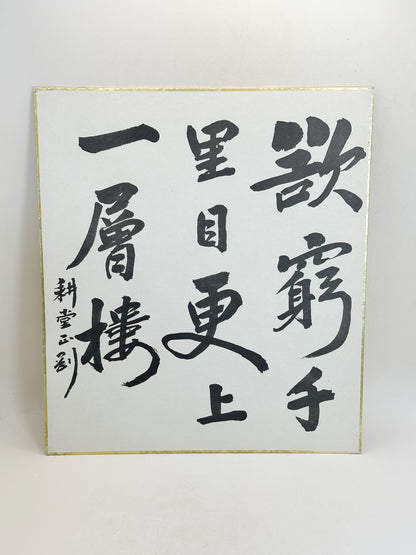 欲窮手
里目更上
一層樓
耕堂正剛